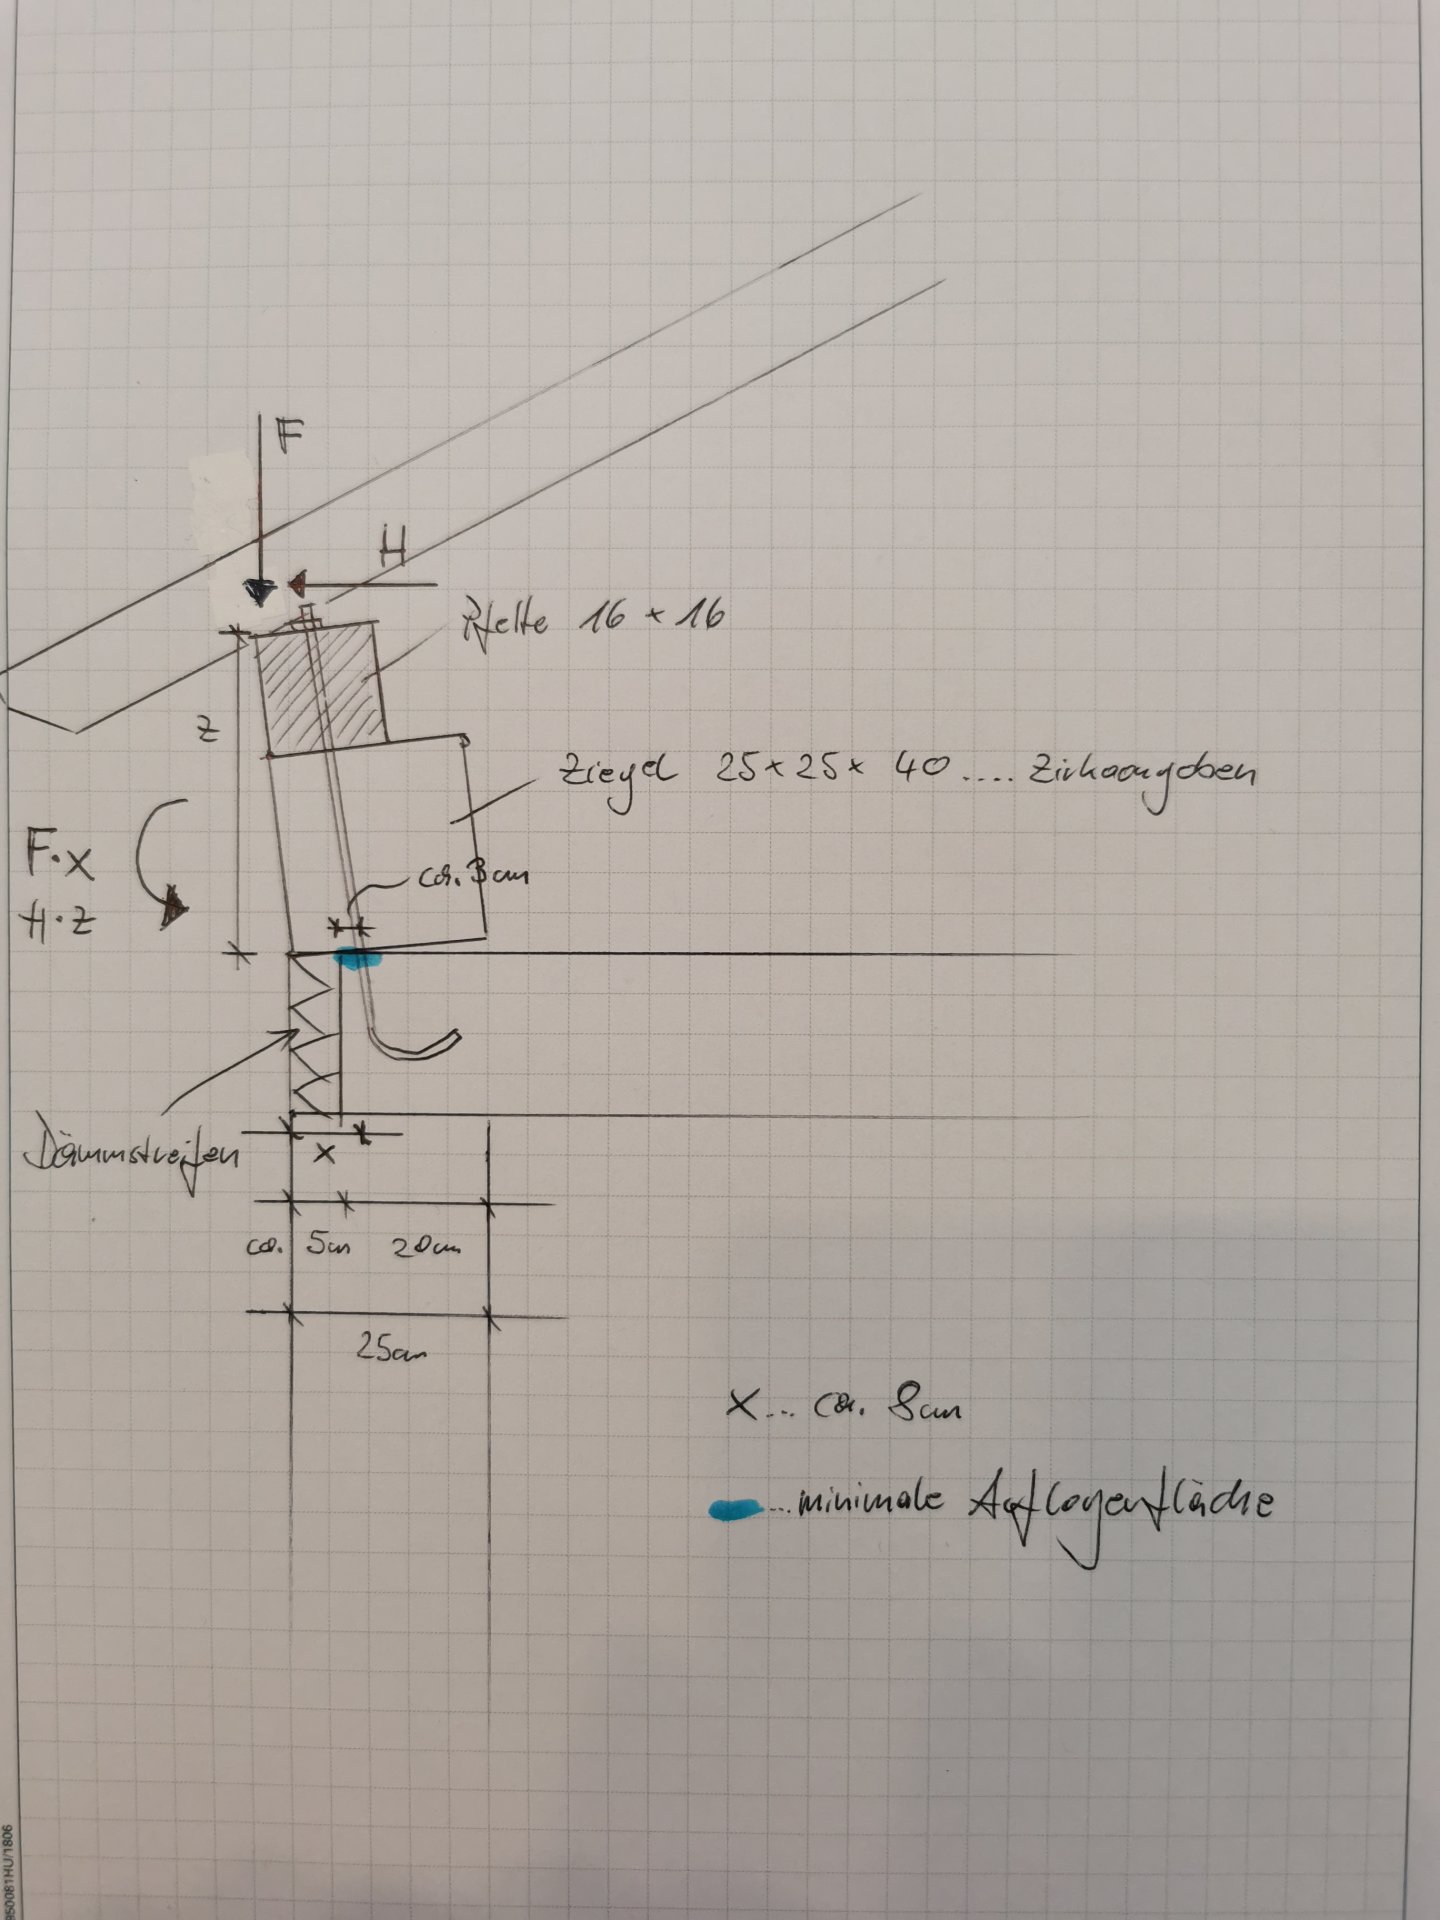 F
H
Pfette 16 x 16
z
Ziegel 25x25x 40 .... Zirkaangaben
F·x
H·z
ca. 3cm
Dämmstreifen
x
ca. 5cm 20cm
25cm
x... ca. 8cm
...minimale Auflagerfläche
950081HU/1806